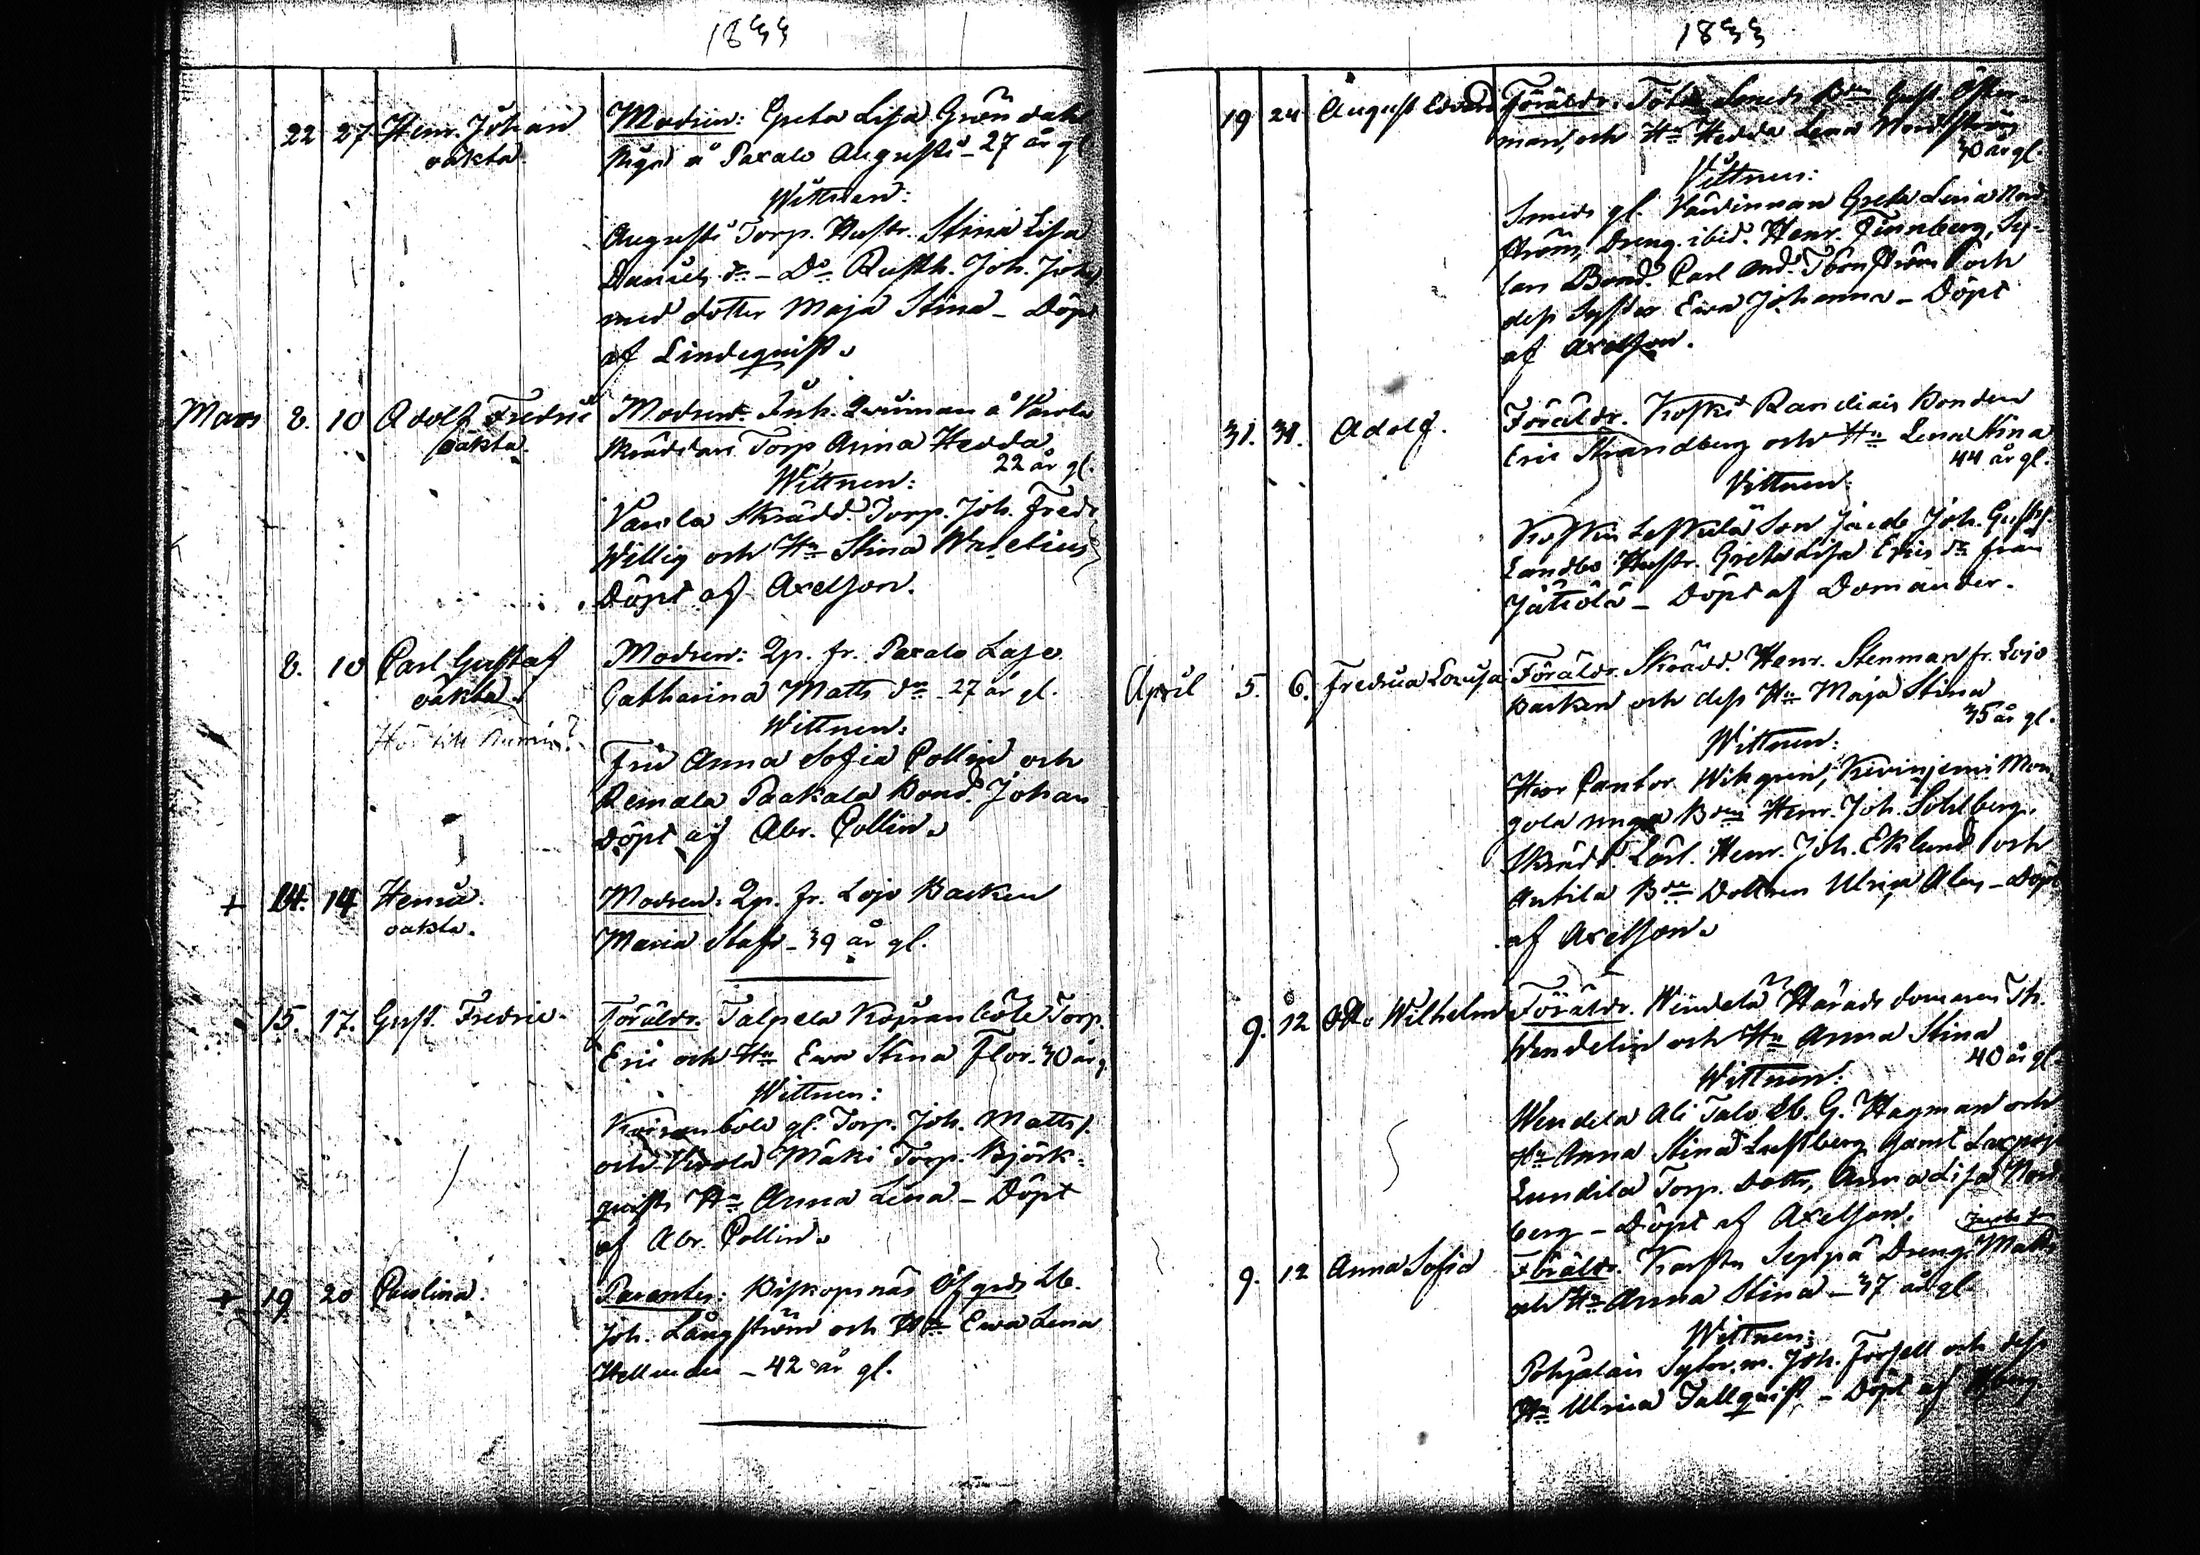 1833
22 27 Henr. Johan
oäkta.
Modren: Greta Lisa Gröndahl
Piga å Paxalo Augusti - 27 år gl
Wittnen:
Augusti Torp. Hustr. Stina Lisa
Daniels dr - Do Rusth. Joh. Joh
med dotter Maja Stina - Döpt
af Lindeqvist.
Mars 8. 10 Adolf Fredric
oäkta.
Modren: Inh. Qvinnan å Varola
Skräddars Torp Anna Hedda
22 år gl.
Wittnen:
Varola Skrädd. Torp. Joh. Fredr
Willig och Hu Stina
Döpt af Axelson.
8. 10 Carl Gustaf
oäkta.
Modren: Qp. fr. Paxalo
Catharina Matts dr - 27 år gl.
Wittnen:
Fru Anna Sofia Collin och
Remala Paakala Bond. Johan
Döpt af Abr. Collin.
+ 14. 14 Henric.
oäkta.
Modren: Qp. fr. Lojo Backen
Maria Staf - 39 år gl.
15. 17. Gust. Fredric.
Föräldr. Talpela Torp.
Eric och Hu Eva Stina Flor. 30 år g.
Wittnen:
gl. Torp. Joh. Matts s.
och Virola Mäki Torp. Björk-
qvists Hu Anna Lena - Döpt
af Abr. Collin.
+ 19 20 Paulina.
Parenter: Biskopsnäs Öfgrds Lb.
Joh. Långström och Hu Eva Lena
- 42 år gl.
1833
19 24 August Edvard
Föräldr. Smeds Bden Gust. Öster-
man, och Hu Hedda Lena Nordström
30 år gl.
Vittnen:
Smeds gl. Värdinnan Greta Lena Nord
ström, Dreng. ibid. Henr. Finnberg,
Bond. Carl And. och
dess Syster Eva Johanna - Döpt
af Axelson.
31. 31. Adolf.
Föräldr. Koski Bonden
Eric Strandberg och Hu Lena Stina
44 år gl.
Vittnen:
Son Jacob Joh. Gustafs.
Landbo Hustr. Greta Lisa Erics dr från
- Döpt af Domander.
April 5. 6. Fredrica Lovisa
Föräldr. Skrädd. Henr. Stenman fr. Lojo
Backen och dess Hu Maja Stina
35 år gl.
Wittnen:
Herr Cantor Wikgren, Kivinjemi Mon
gola unga Bden Henr. Joh. Sohlberg,
Skrädd. Lärl. Henr. Joh. Eklund och
Antila Bde Dottren Ulrica - Döpt
af Axelson.
9. 12 Otto Wilhelm
Föräldr. Wendelä Härads domaren Th.
Wendelin och Hu Anna Stina
40 år gl.
Wittnen:
Wendela Ali Talo Lb. G. Hagman och
Hu Anna Stina Lustberg, Gaml
Lundila Torp. Dotts, Anna Lisa Nord
berg - Döpt af Axelson.
Jacobs son
9. 12 Anna Sofia
Föräldr. Karstu Seppä Dreng. Matts
och Hu Anna Stina - 37 år gl.
Wittnen:
Pohjolais Joh. Forsell och dess
Hu Ulrica Tallqvist - Döpt af